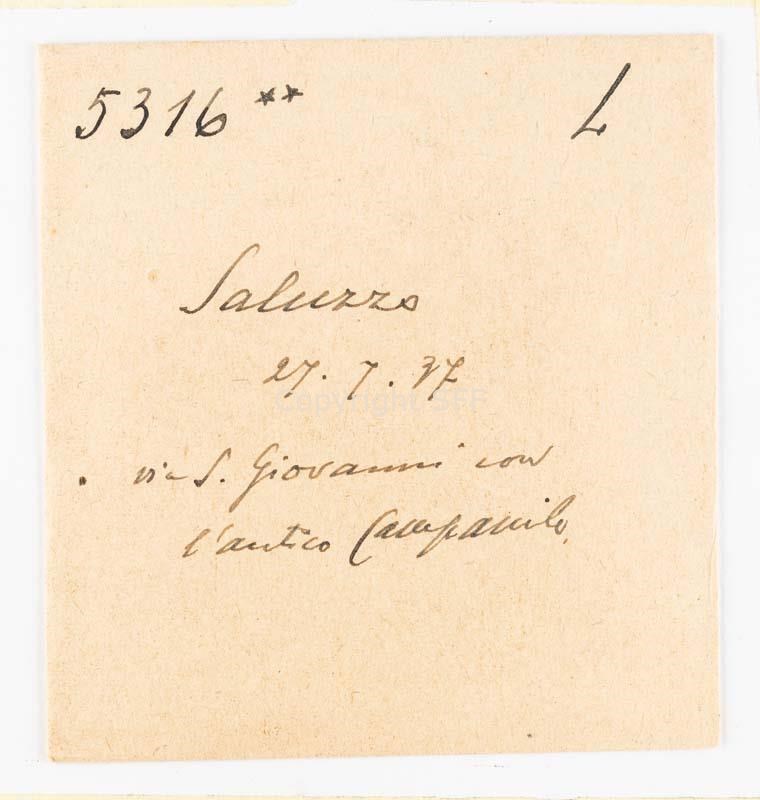 5316** L
Saluzzo
27. 7. 37
Copyright SFF
via S. Giovanni con
l'antico Campanile